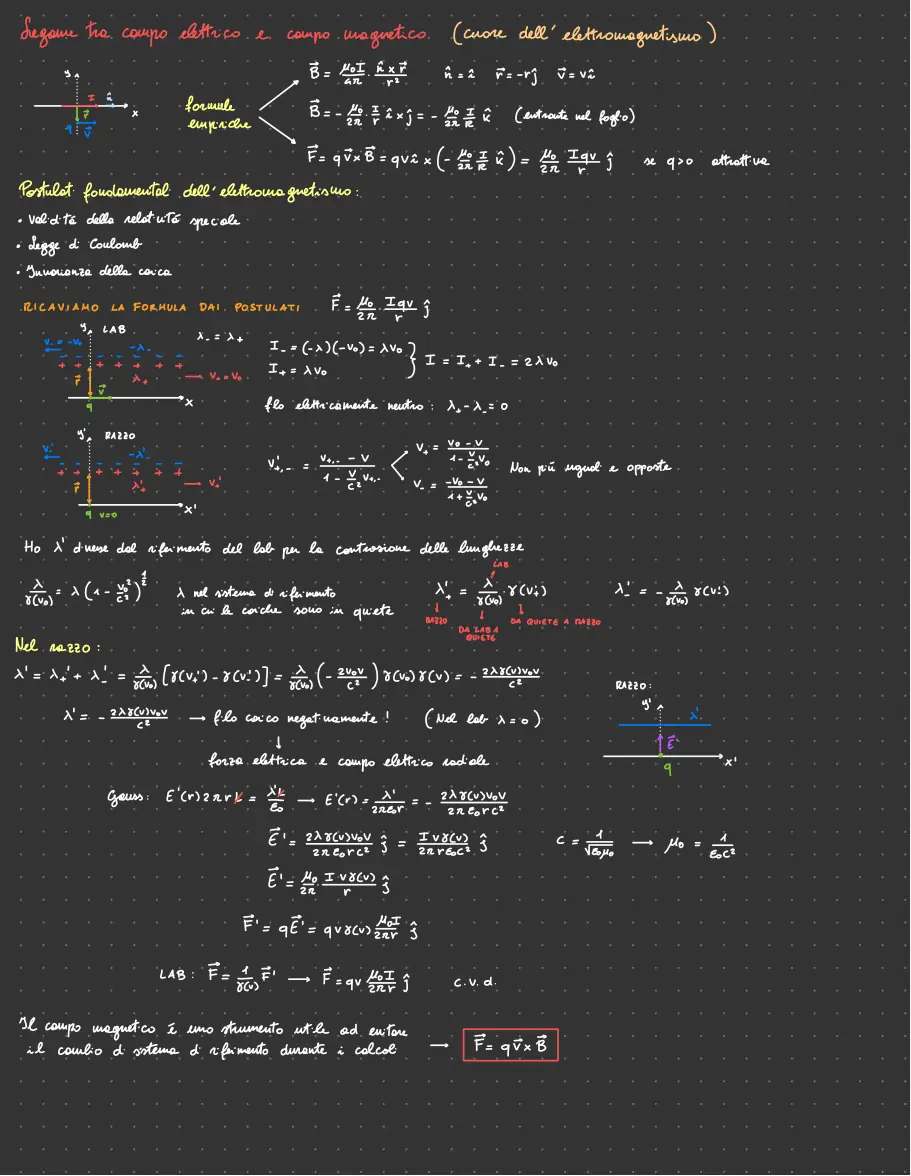 Legame tra campo elettrico e campo magnetico (cuore dell'elettromagnetismo)
y I n̂ x r⃗ q v⃗
formule empiriche
B⃗ = μ₀I/4π · n̂×r⃗/r² n̂ = î r⃗ = -rĵ v⃗ = vî
B⃗ = - μ₀/2π · I/r î×ĵ = - μ₀/2π I/R k̂ (entrante nel foglio)
F⃗ = qv⃗×B⃗ = qvî × (- μ₀/2π I/R k̂) = μ₀/2π Iqv/r ĵ se q>0 attrattiva
Postulati fondamentali dell'elettromagnetismo:
• Validità della relatività speciale
• Legge di Coulomb
• Invarianza della carica
RICAVIAMO LA FORMULA DAI POSTULATI F⃗ = μ₀/2π · Iqv/r ĵ
y LAB λ₋ = λ₊
v₋ = -v₀ -λ₋ I₋ = (-λ)(-v₀) = λv₀
r⃗ λ₊ v₊ = v₀ I₊ = λv₀ } I = I₊ + I₋ = 2λv₀
v⃗ q x filo elettricamente neutro: λ₊ - λ₋ = 0
y' RAZZO
v₋' -λ₋' v'₊,₋ = (v₊,₋ - v)/(1 - v/c² v₊,₋) v₊ = (v₀ - v)/(1 - v/c² v₀)
r⃗ λ₊' v₊' v₋ = (-v₀ - v)/(1 + v/c² v₀) Non più uguali e opposte
q v=0 x'
Ho λ' diverse dal riferimento del lab per la contrazione delle lunghezze
λ/γ(v₀) = λ(1 - v₀²/c²)^(1/2) λ nel sistema di riferimento
in cui le cariche sono in quiete
LAB
λ₊' = λ/γ(v₀) γ(v₊') λ₋' = - λ/γ(v₀) γ(v₋')
RAZZO DA LAB A QUIETE DA QUIETE A RAZZO
Nel razzo:
λ' = λ₊' + λ₋' = λ/γ(v₀) [γ(v₊') - γ(v₋')] = λ/γ(v₀) (- 2v₀v/c²) γ(v₀)γ(v) = - 2λγ(v)v₀v/c²
RAZZO:
y' λ' E⃗' q x'
λ' = - 2λγ(v)v₀v/c² → filo carico negativamente! (Nel lab λ=0)
↓
forza elettrica e campo elettrico radiale
Gauss: E'(r)2πrL = λ'L/ε₀ → E'(r) = λ'/2πε₀r = - 2λγ(v)v₀v/2πε₀rc²
E⃗' = 2λγ(v)v₀v/2πε₀rc² ĵ = Ivγ(v)/2πrε₀c² ĵ c = 1/√ε₀μ₀ → μ₀ = 1/ε₀c²
E⃗' = μ₀/2π · Ivγ(v)/r ĵ
F⃗' = qE⃗' = qvγ(v) μ₀I/2πr ĵ
LAB: F⃗ = 1/γ(v) F⃗' → F⃗ = qv μ₀I/2πr ĵ c.v.d.
Il campo magnetico è uno strumento utile ad evitare
il cambio di sistema di riferimento durante i calcoli → F⃗ = qv⃗×B⃗